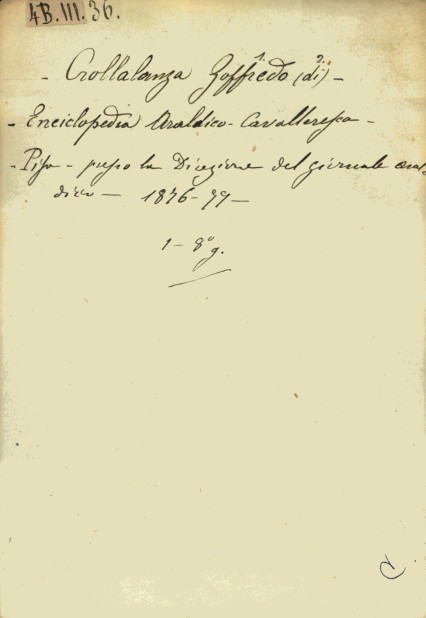 4B.III.36.
- Crollalanza Goffredo (di) -
1. 2.
- Enciclopedia Araldico-Cavalleresca -
- Pisa - presso la Direzione del giornale aral-
dico - 1876-77 -
1 - 8º g.